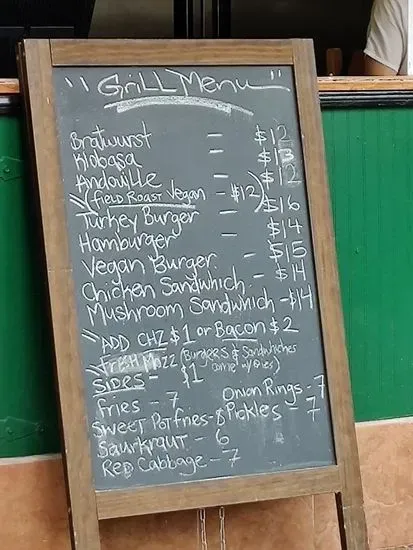 "Grill Menu"
Bratwurst - $12
Klobasa - $13
Andouille - $12
(Field Roast Vegan - $12)
Turkey Burger - $16
Hamburger - $14
Vegan Burger - $15
Chicken Sandwhich - $14
Mushroom Sandwhich - $14
ADD CHZ $1 or Bacon $2
Fresh Mozz (Burgers & Sandwhiches
come w/ fries)
SIDES - $1
Fries - 7
Onion Rings - 7
Sweet Pot fries - 8
Pickles - 7
Saurkraut - 6
Red Cabbage - 7